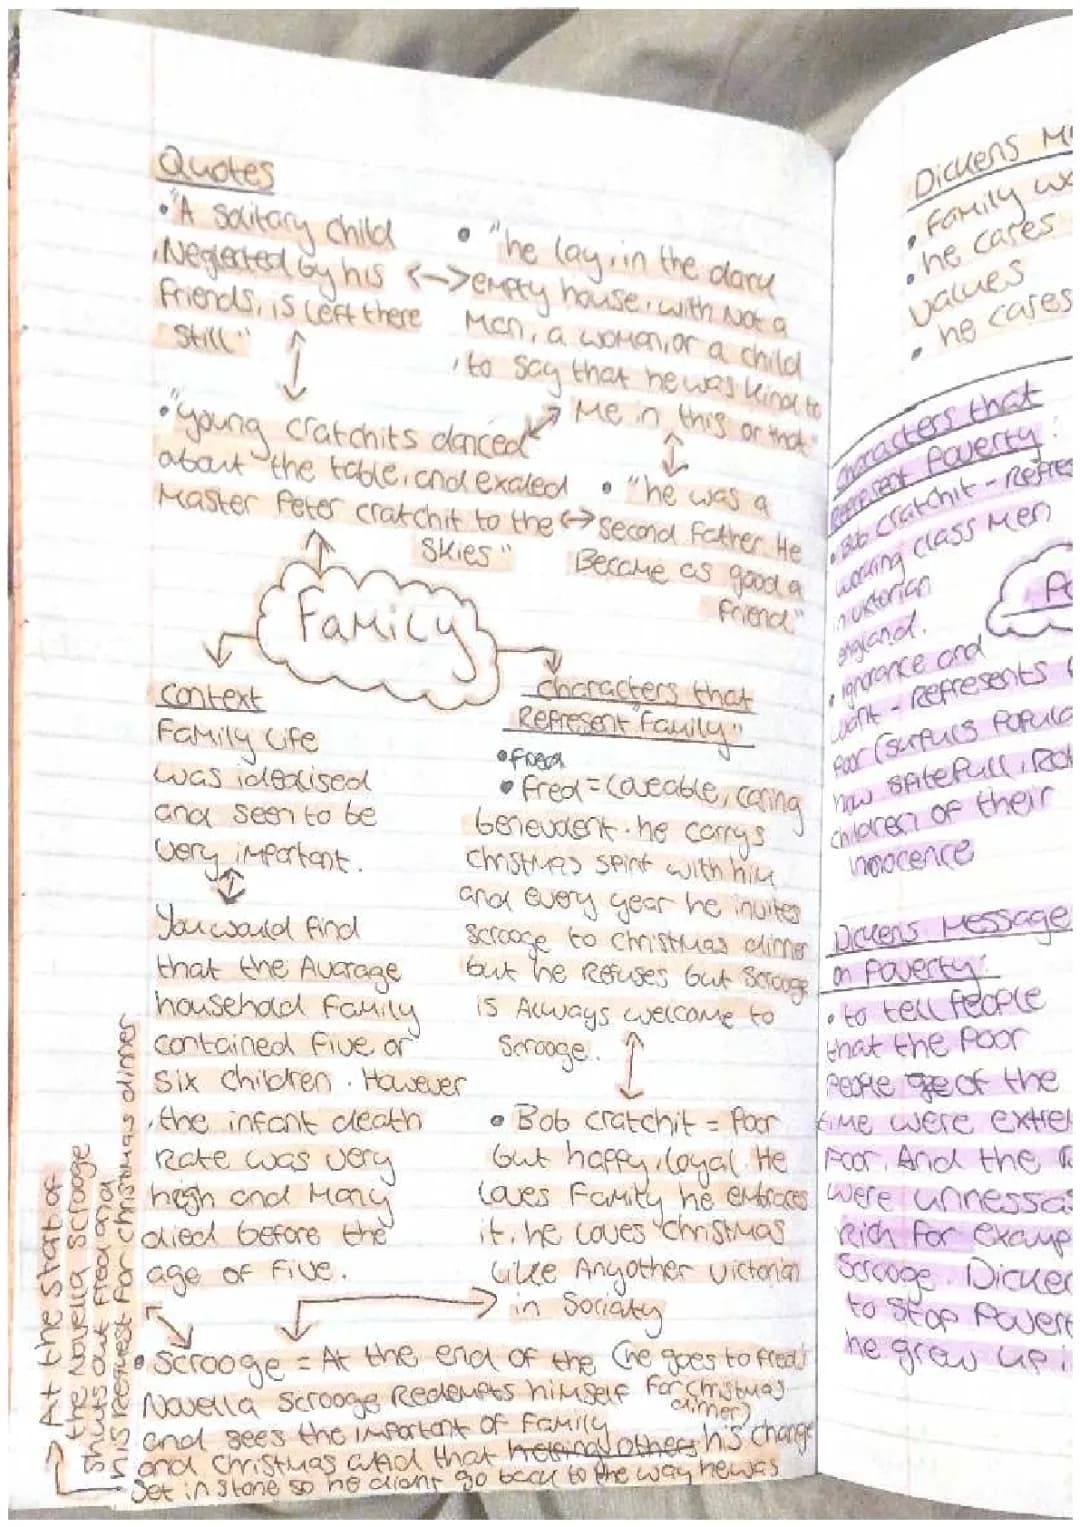 Quotes
• "A solitary child
Neglected by his
friends, is left there
still"
• "he lay, in the dark
empty house, with not a
Man, a woman, or a child
, to say that he was kind to
Me in this or that"
• "young cratchits danced
about the table, and exaled
Master Peter cratchit to the
skies"
• "he was a
second father. He
Became as good a
friend"
Family
context
Family life
was idealised
and seen to be
very important.
You would find
that the Avarage
household family
contained five or
six children. However
, the infant death
Rate was very
high and Many
died before the
age of five.
characters that
Represent "Family"
• Fred
• Fred = loveable, caring
benevolent. he carrys
christmas spirit with him
and every year he invites
scrooge to christmas dinner
but he Refuses but scrooge
is Always welcome to
Scrooge.
• Bob cratchit = Poor
but happy, loyal. He
loves family he embraces
it. he loves christmas
like Anyother victorian
in Sociaty
• Scrooge = At the end of the (he goes to freds
Novella Scrooge Redempts himself for christmas
dinner)
and sees the important of family
and christmas and that helping others his change
set in stone so he didnt go back to the way he was
At the start of
the Novella scrooge
shuts out fred and
his request for christmas dinner
Dickens
• family
• he cares
values
• he cares
characters that
Represent Poverty:
• Bob cratchit -
working class Men
in victorian
england.
• ignorance and
want - Represents
Poor
how spitefull,
children of their
innocence
Dickens Message
on Poverty:
• to tell people
that the Poor
People of the
time were
Poor. And the
were
Rich for
Scrooge.
to stop
he grew up